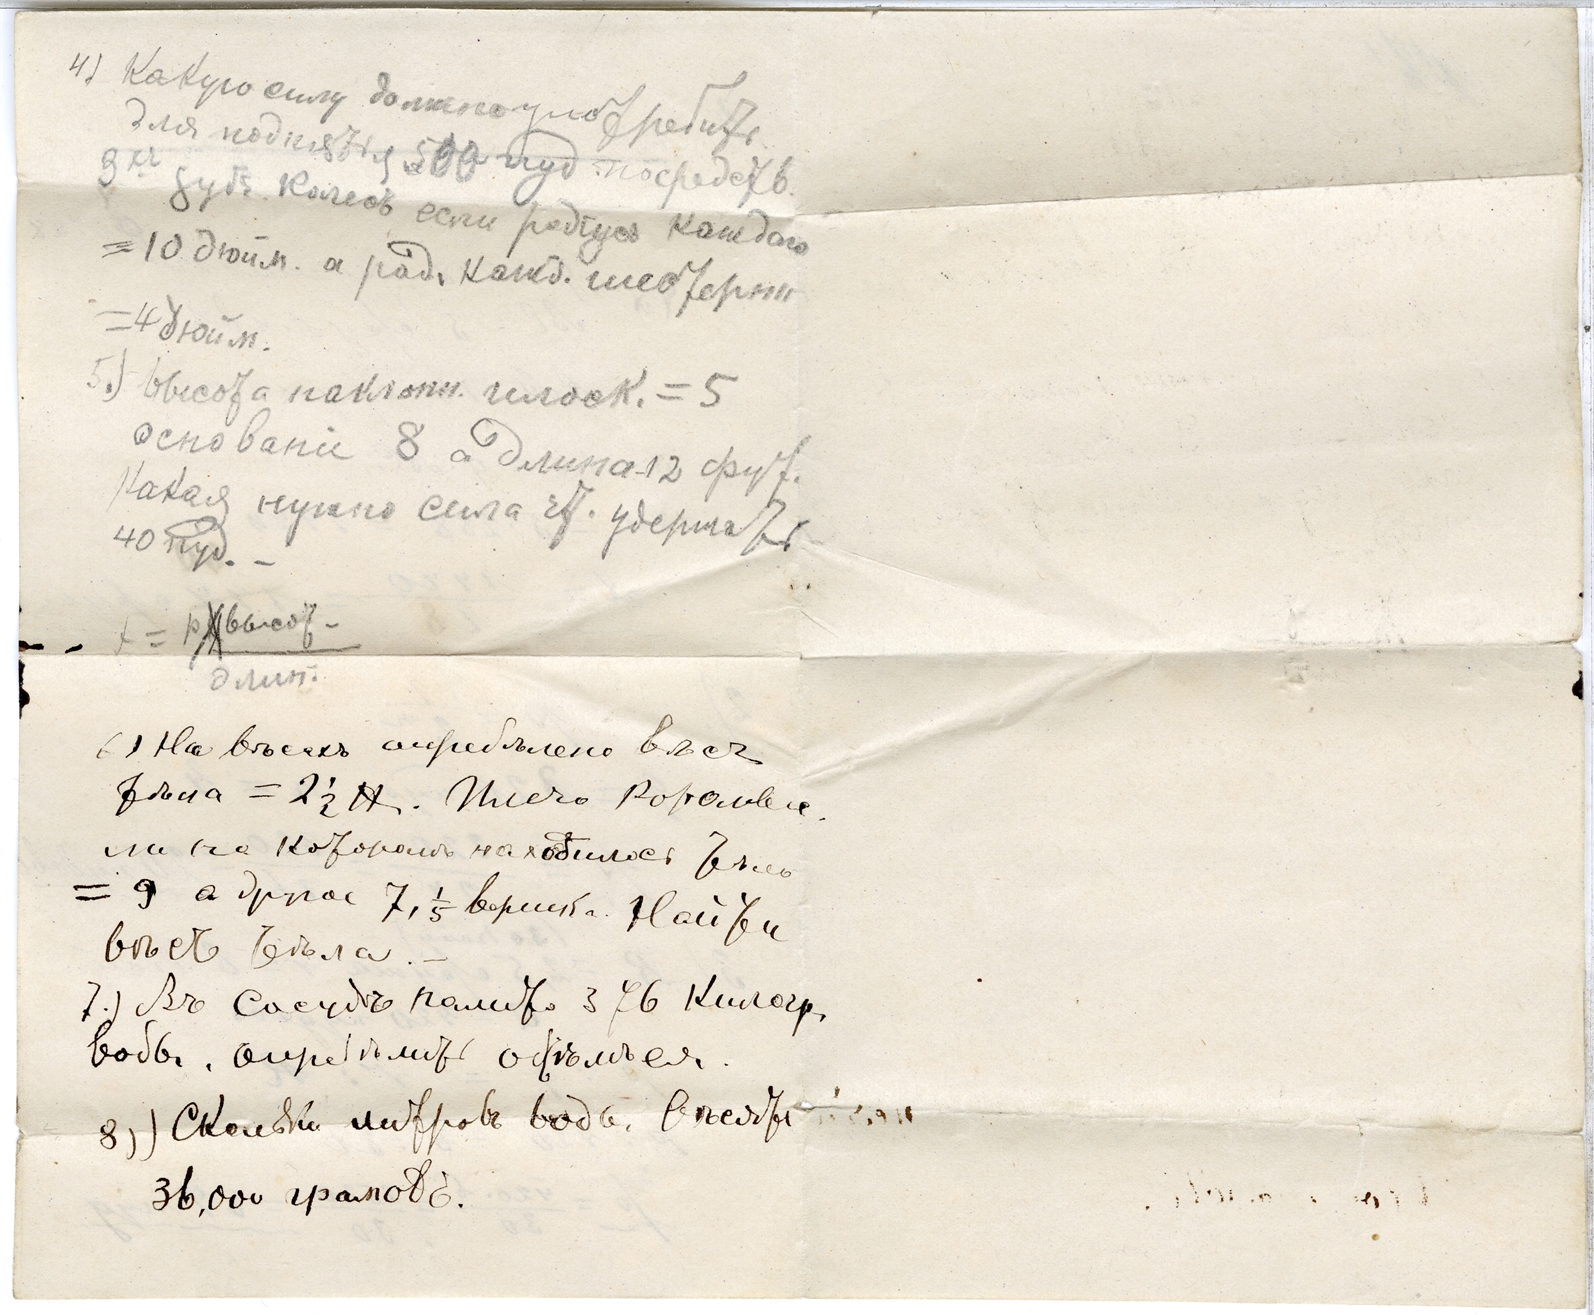 4) Какую силу должно употребить
для поднятія 500 пуд посредств.
3хъ зубч. колесъ если радіусъ каждаго
= 10 дюйм. а рад. кажд. шестерни
= 4 дюйм.
5.) Высота наклонн. плоск. = 5
основаніе 8 а длина 12 фут.
Какая нужно сила чт. удержать
40 пуд. –
x = р высот.
длин.
6) На вѣсахъ опредѣлено вѣсъ
тѣла = 2 1/2 ℔. Плечо коромысл
ли на которомъ находилось тѣло
= 9 а другое 7, 1/5 вершк. Найти
вѣсъ тѣла. –
7.) Въ сосудъ налито 376 килогр.
воды, опредѣлить объемъ ея.
8)) Сколько литровъ воды вѣсятъ
36,000 грамовъ.